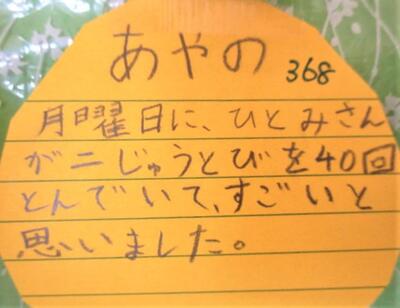 あやの 368
月曜日に、ひとみさん
が二じゅうとびを40回
とんでいて、すごいと
思いました。